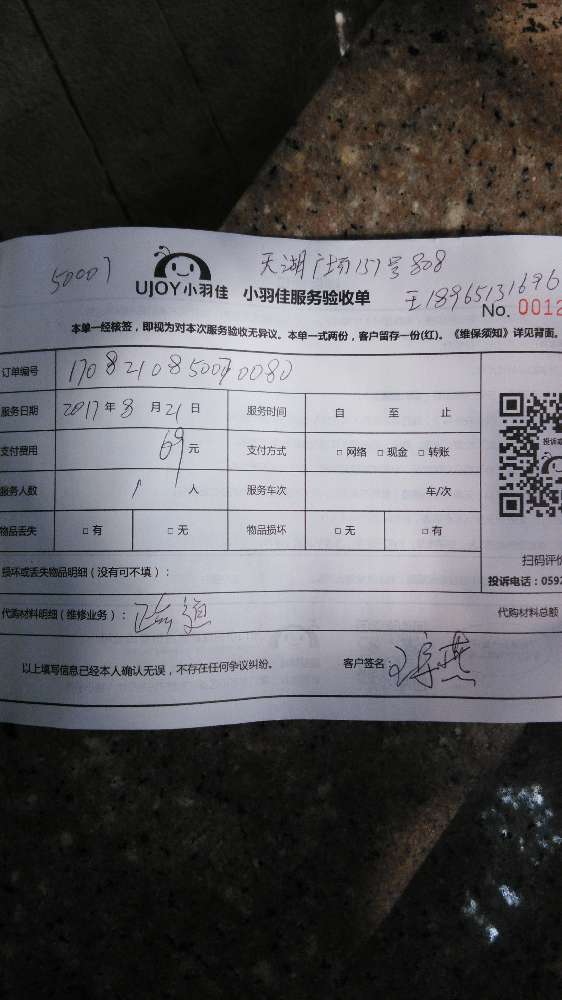 50007
天湖广场157号808
UJOY小羽佳 小羽佳服务验收单
王18965131696
No. 0012
本单一经核签，即视为对本次服务验收无异议。本单一式两份，客户留存一份(红)。《维保须知》详见背面。
订单编号 1708210850070080
服务日期 2017年8月21日 服务时间 自 至 止
支付费用 69元 支付方式 □ 网络 □ 现金 □ 转账
服务人数 1 人 服务车次 车/次
物品丢失 □ 有 □ 无 物品损坏 □ 无 □ 有
投诉
扫码评价
投诉电话：0592
损坏或丢失物品明细（没有可不填）：
代购材料明细（维修业务）： 代购材料总额
以上填写信息已经本人确认无误，不存在任何争议纠纷。 客户签名：